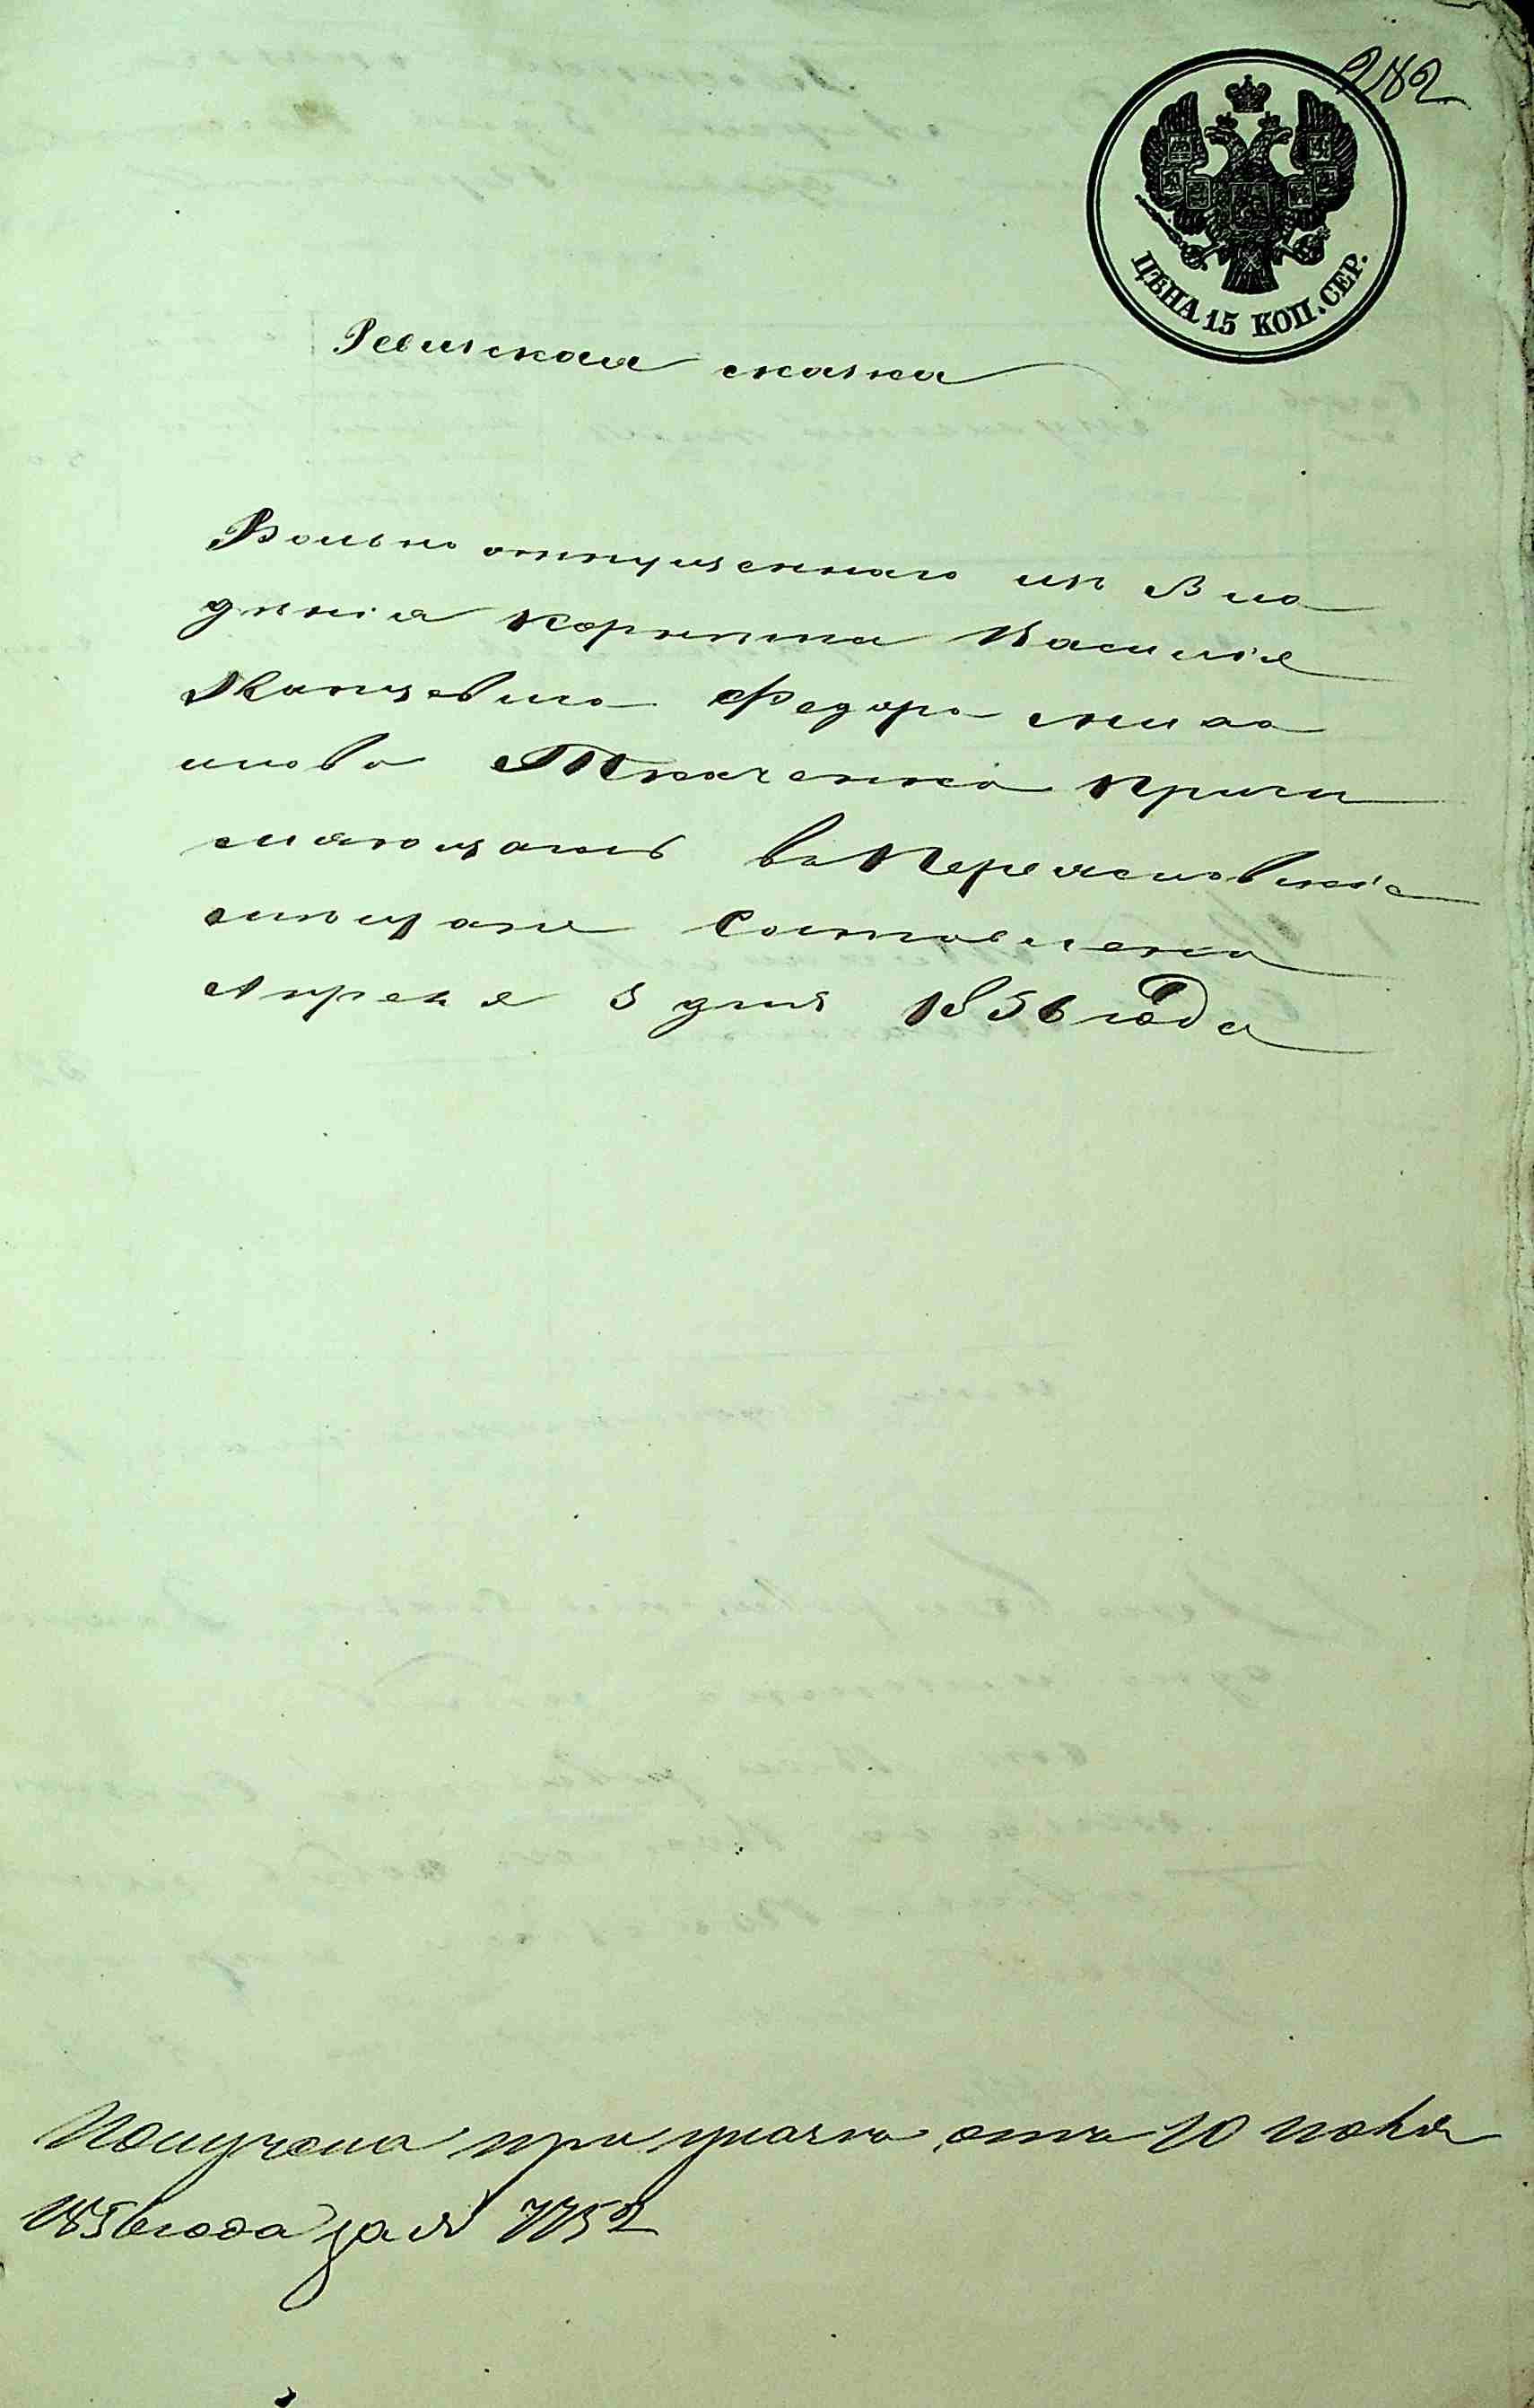 282
ЦѢНА 15 КОП. СЕР.
Ревизская сказка
Вольно отпущеннаго изъ Вла
дѣнія Корнета Василія
Федора Михаи
лова Ткаченка Причи
сляющагось въ Переясловскіе
мѣщане Составлена
Апреля 3 дня 1856 года
Получена при указѣ отъ 10 ноября
1856 года за № 7752